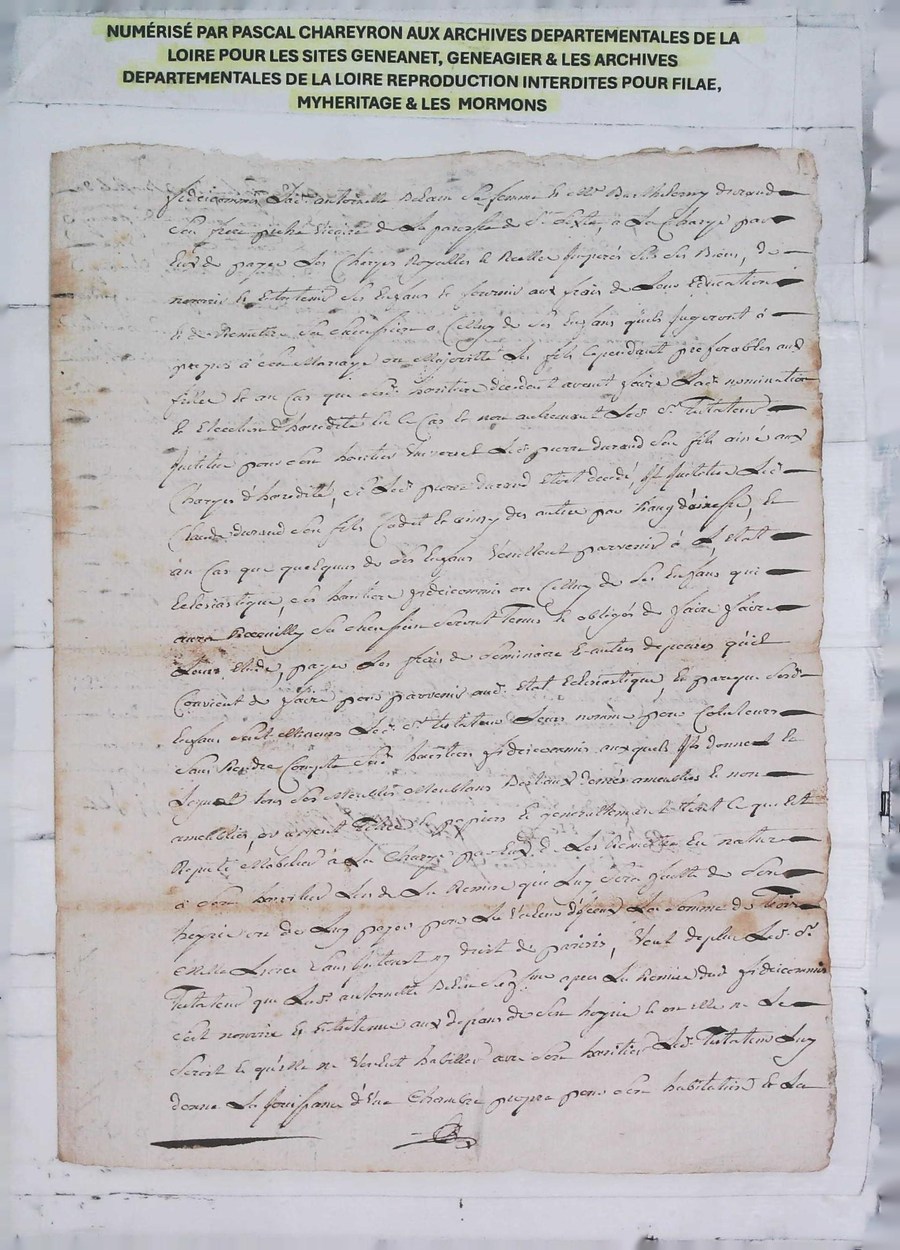 NUMÉRISÉ PAR PASCAL CHAREYRON AUX ARCHIVES DEPARTEMENTALES DE LA
LOIRE POUR LES SITES GENEANET, GENEAGIER & LES ARCHIVES
DEPARTEMENTALES DE LA LOIRE REPRODUCTION INTERDITES POUR FILAE,
MYHERITAGE & LES MORMONS
fideicommis lad. antoinette sa femme & Mre Barthelemy durand
son frere vicaire de La paroisse de St. à La Charge par
Eux de payer Les Charges Royalles & Reelles Imposés sur ses Biens, de
nourrir & Entretenir ses Enfans & fournir aux frais de Leur Education
& de Remettre Sa à Celluy de ses Enfans quils Jugeront à
propos à son Mariage ou Majorité Les fils Cependant preferables aux
filles & au Cas que heritiere decedat avant faire Lade nomination
& Election d'heredité En Ce Cas & non autrement Led. Sr. Testateur
Institue pour son heritier universel Led. pierre durand son fils ainé aux
Charges d'heredité, & Led. pierre durand Etant decedé, Il Institue Led.
Claude durand son fils Cadet & ainsy des autres par Rang d'ainesse, &
au Cas que quelquns de ses Enfans veuillent parvenir à L'Etat
Eclesiastique, ses heritiers fideicommis ou Celluy de ses Enfans qui
aura Receuilly Sa seront Tenus & obligés de faire faire
Leurs Etude, payer Les frais de seminaire & autres depences qu'il
Convient de faire pour parvenir aud. Etat Eclesiastique, & parceque sesd.
Enfans sont Mineurs Led. Sr. testateur Leurs nomme pour
sans Rendre Compte sesd. heritiers fideicommis auxquels Il donne &
Legue tous ses Meubles Meublans Bestiaux & non
or argent papiers & generallement tout Ce qui Est
Reputé Mobilier à La Charge par Eux de Les Remettre En nature
à son heritier Lors de La Remise qui Luy sera faitte de son
hoyrie ou de Luy payer pour La Valleur d'iceux La somme de trois
Mille Livres sans Interest ny droit de , Veut de plus Led. Sr.
Testateur que Lade antoinette sa fme apres La Remise dud. fideicommis
soit nourrie & Entretenue aux depans de son hoyrie & ou elle ne Le
seroit & qu'elle ne voulut habiller avec son heritier Led. Testateur Luy
donne La Jouissance d'une Chambre propre pour son habitation & La